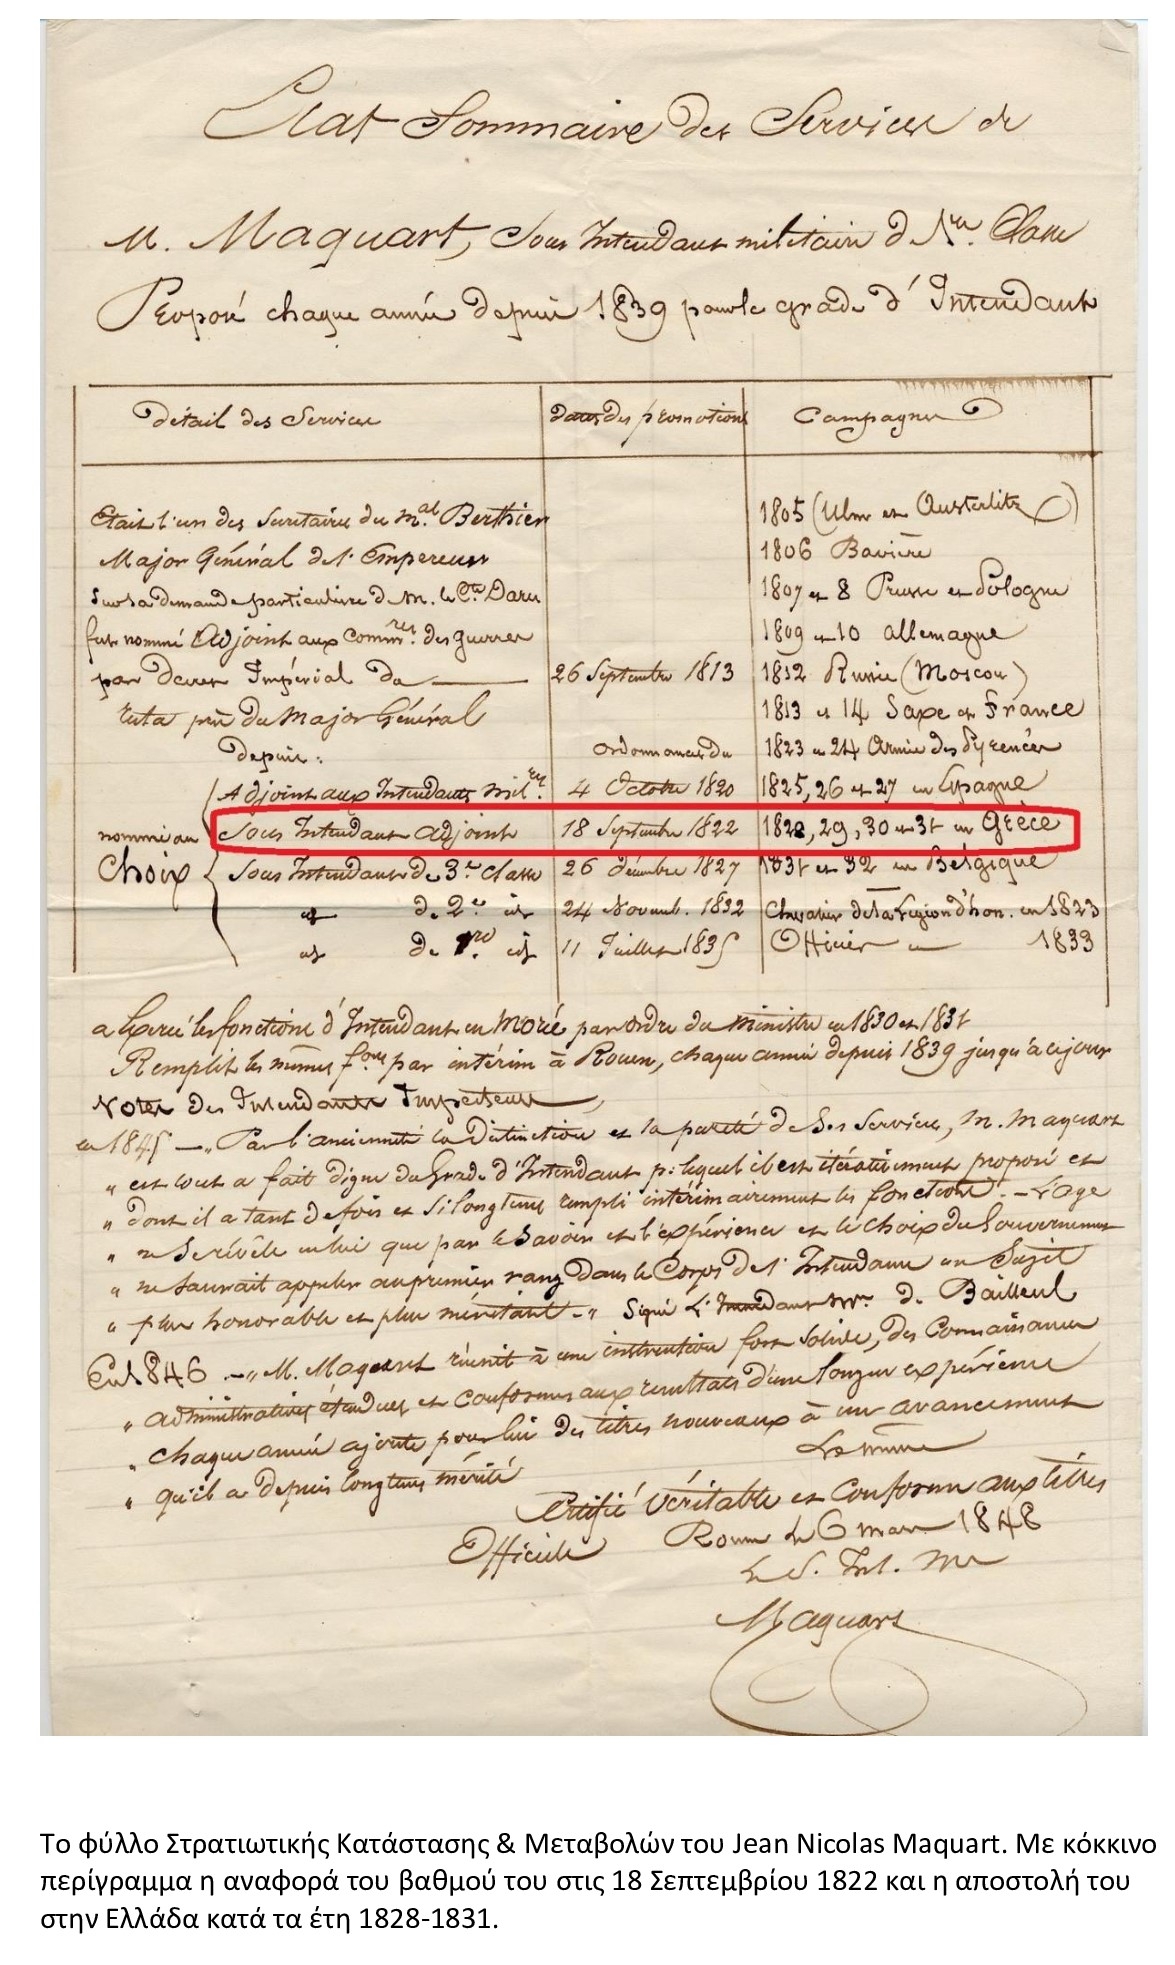 Etat Sommaire des Services de
M. Maquart, Sous Intendant militaire de 1re Classe
Proposé chaque année depuis 1839 pour le grade d'Intendant
détail des Services
dates des promotions
Campagnes
Etait l'un des Secretaires du Mal Berthier
Major Général de l'Empereur
Sur la demande particulière de M. le Cte Daru
fut nommé Adjoint aux Commres des guerres
par Decret Impérial du
26 Septembre 1813
resta près du Major Général
depuis :
ordonnances du
1805 (Ulm et Austerlitz)
1806 Bavière
1807 et 8 Prusse et Pologne
1809 et 10 allemagne
1812 Russie (Moscou)
1813 et 14 Saxe et France
1823 et 24 Armée des Pyrenées
nommé au
Choix
Adjoint aux Intendants milres 4 Octobre 1820 1825, 26 et 27 en Espagne
Sous Intendant adjoint 18 Septembre 1822 1828, 29, 30 et 31 en Grèce
Sous Intendant de 3e classe 26 décembre 1827 1831 et 32 en Belgique
id de 2e id 24 Novemb. 1832 Chevalier de la Légion d'hon. en 1823
id de 1re id 11 Juillet 1835 Officier en 1833
a Exercé les fonctions d'Intendant en Morée par ordre du Ministre en 1830 et 1831
Remplit les mêmes fons par intérim à Rouen, chaque année depuis 1839 jusqu'à ce jour
Notes des Intendants Inspecteurs
en 1845 — „ Par l'ancienneté la Distinction et la pureté de Ses Services, M. Maquart
„ est tout a fait digne du Grade d'Intendant p: lequel il est itérativement proposé et
„ dont il a tant de fois et si longtems rempli intérimairement les fonctions. — L'age
„ ne Se révèle en lui que par le Savoir et l'expérience et le choix du Gouvernement
„ ne Saurait appeler au premier rang dans le Corps de l'Intendance un Sujet
„ plus honorable et plus méritant. „ Signé L'Intendant Mre de Bailleul
En 1846 — „ M. Maquart réunit à une instruction fort solide, des Connaissances
„ administratives étendues et conformes aux resultats d'une longue expérience
„ chaque année ajoute pour lui des titres nouveaux à un avancement
„ qu'il a depuis longtems mérité
Le même
Certifié Véritable et Conforme aux titres
Officiels
Rouen le 6 mars 1848
Le S. Int. Mre
Maquart
Το φύλλο Στρατιωτικής Κατάστασης & Μεταβολών του Jean Nicolas Maquart. Με κόκκινο
περίγραμμα η αναφορά του βαθμού του στις 18 Σεπτεμβρίου 1822 και η αποστολή του
στην Ελλάδα κατά τα έτη 1828-1831.